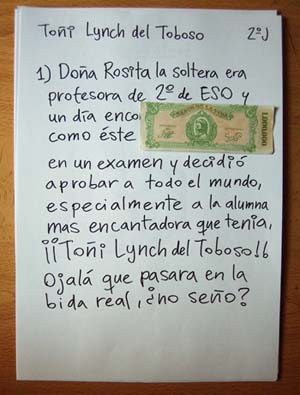 Toñi Lynch del Toboso 2ºJ
1) Doña Rosita la soltera era
profesora de 2º de ESO y
un día enco
como éste
1.000.000
en un examen y decidió
aprobar a todo el mundo,
especialmente a la alumna
mas encantadora que tenía,
¡¡Toñi Lynch del Toboso!!
Ojalá que pasara en la
bida real, ¿no seño?